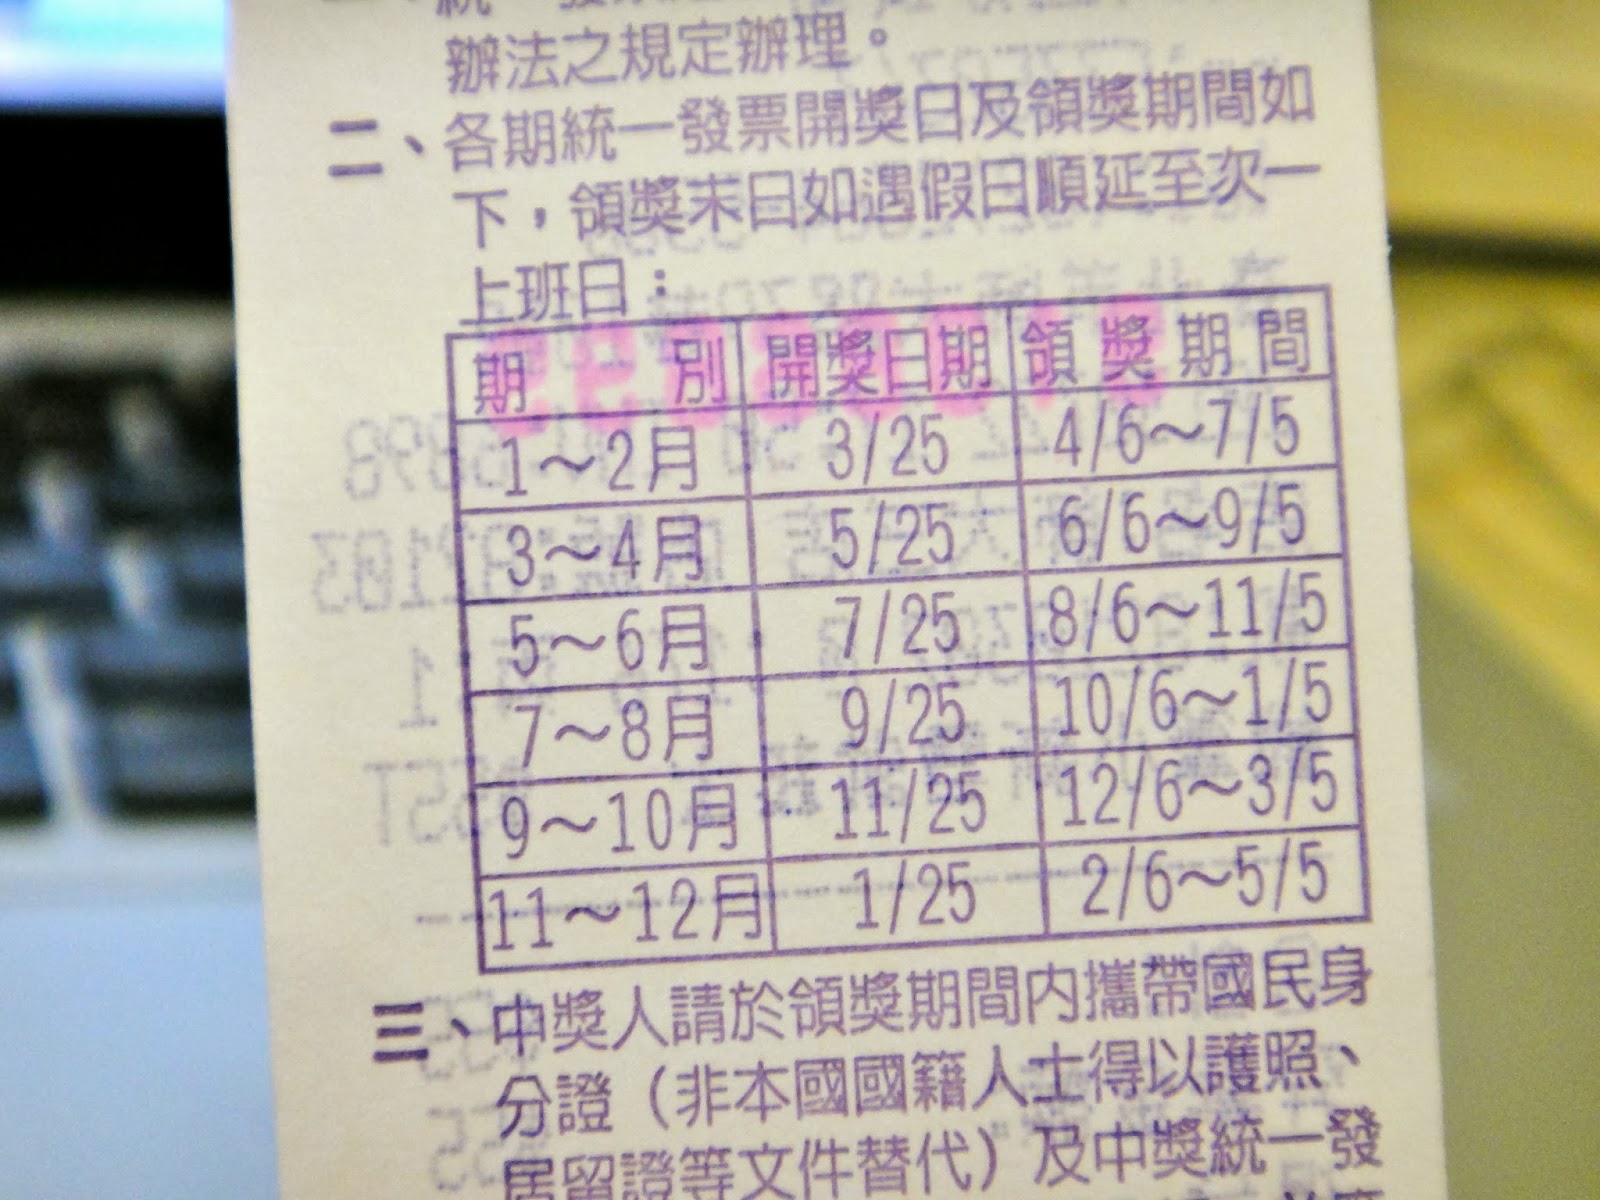 辦法之規定辦理。
二、各期統一發票開獎日及領獎期間如
下，領獎末日如遇假日順延至次一
上班日：
期 別 開獎日期 領獎期間
1～2月 3/25 4/6～7/5
3～4月 5/25 6/6～9/5
5～6月 7/25 8/6～11/5
7～8月 9/25 10/6～1/5
9～10月 11/25 12/6～3/5
11～12月 1/25 2/6～5/5
三、中獎人請於領獎期間內攜帶國民身
分證（非本國國籍人士得以護照、
居留證等文件替代）及中獎統一發